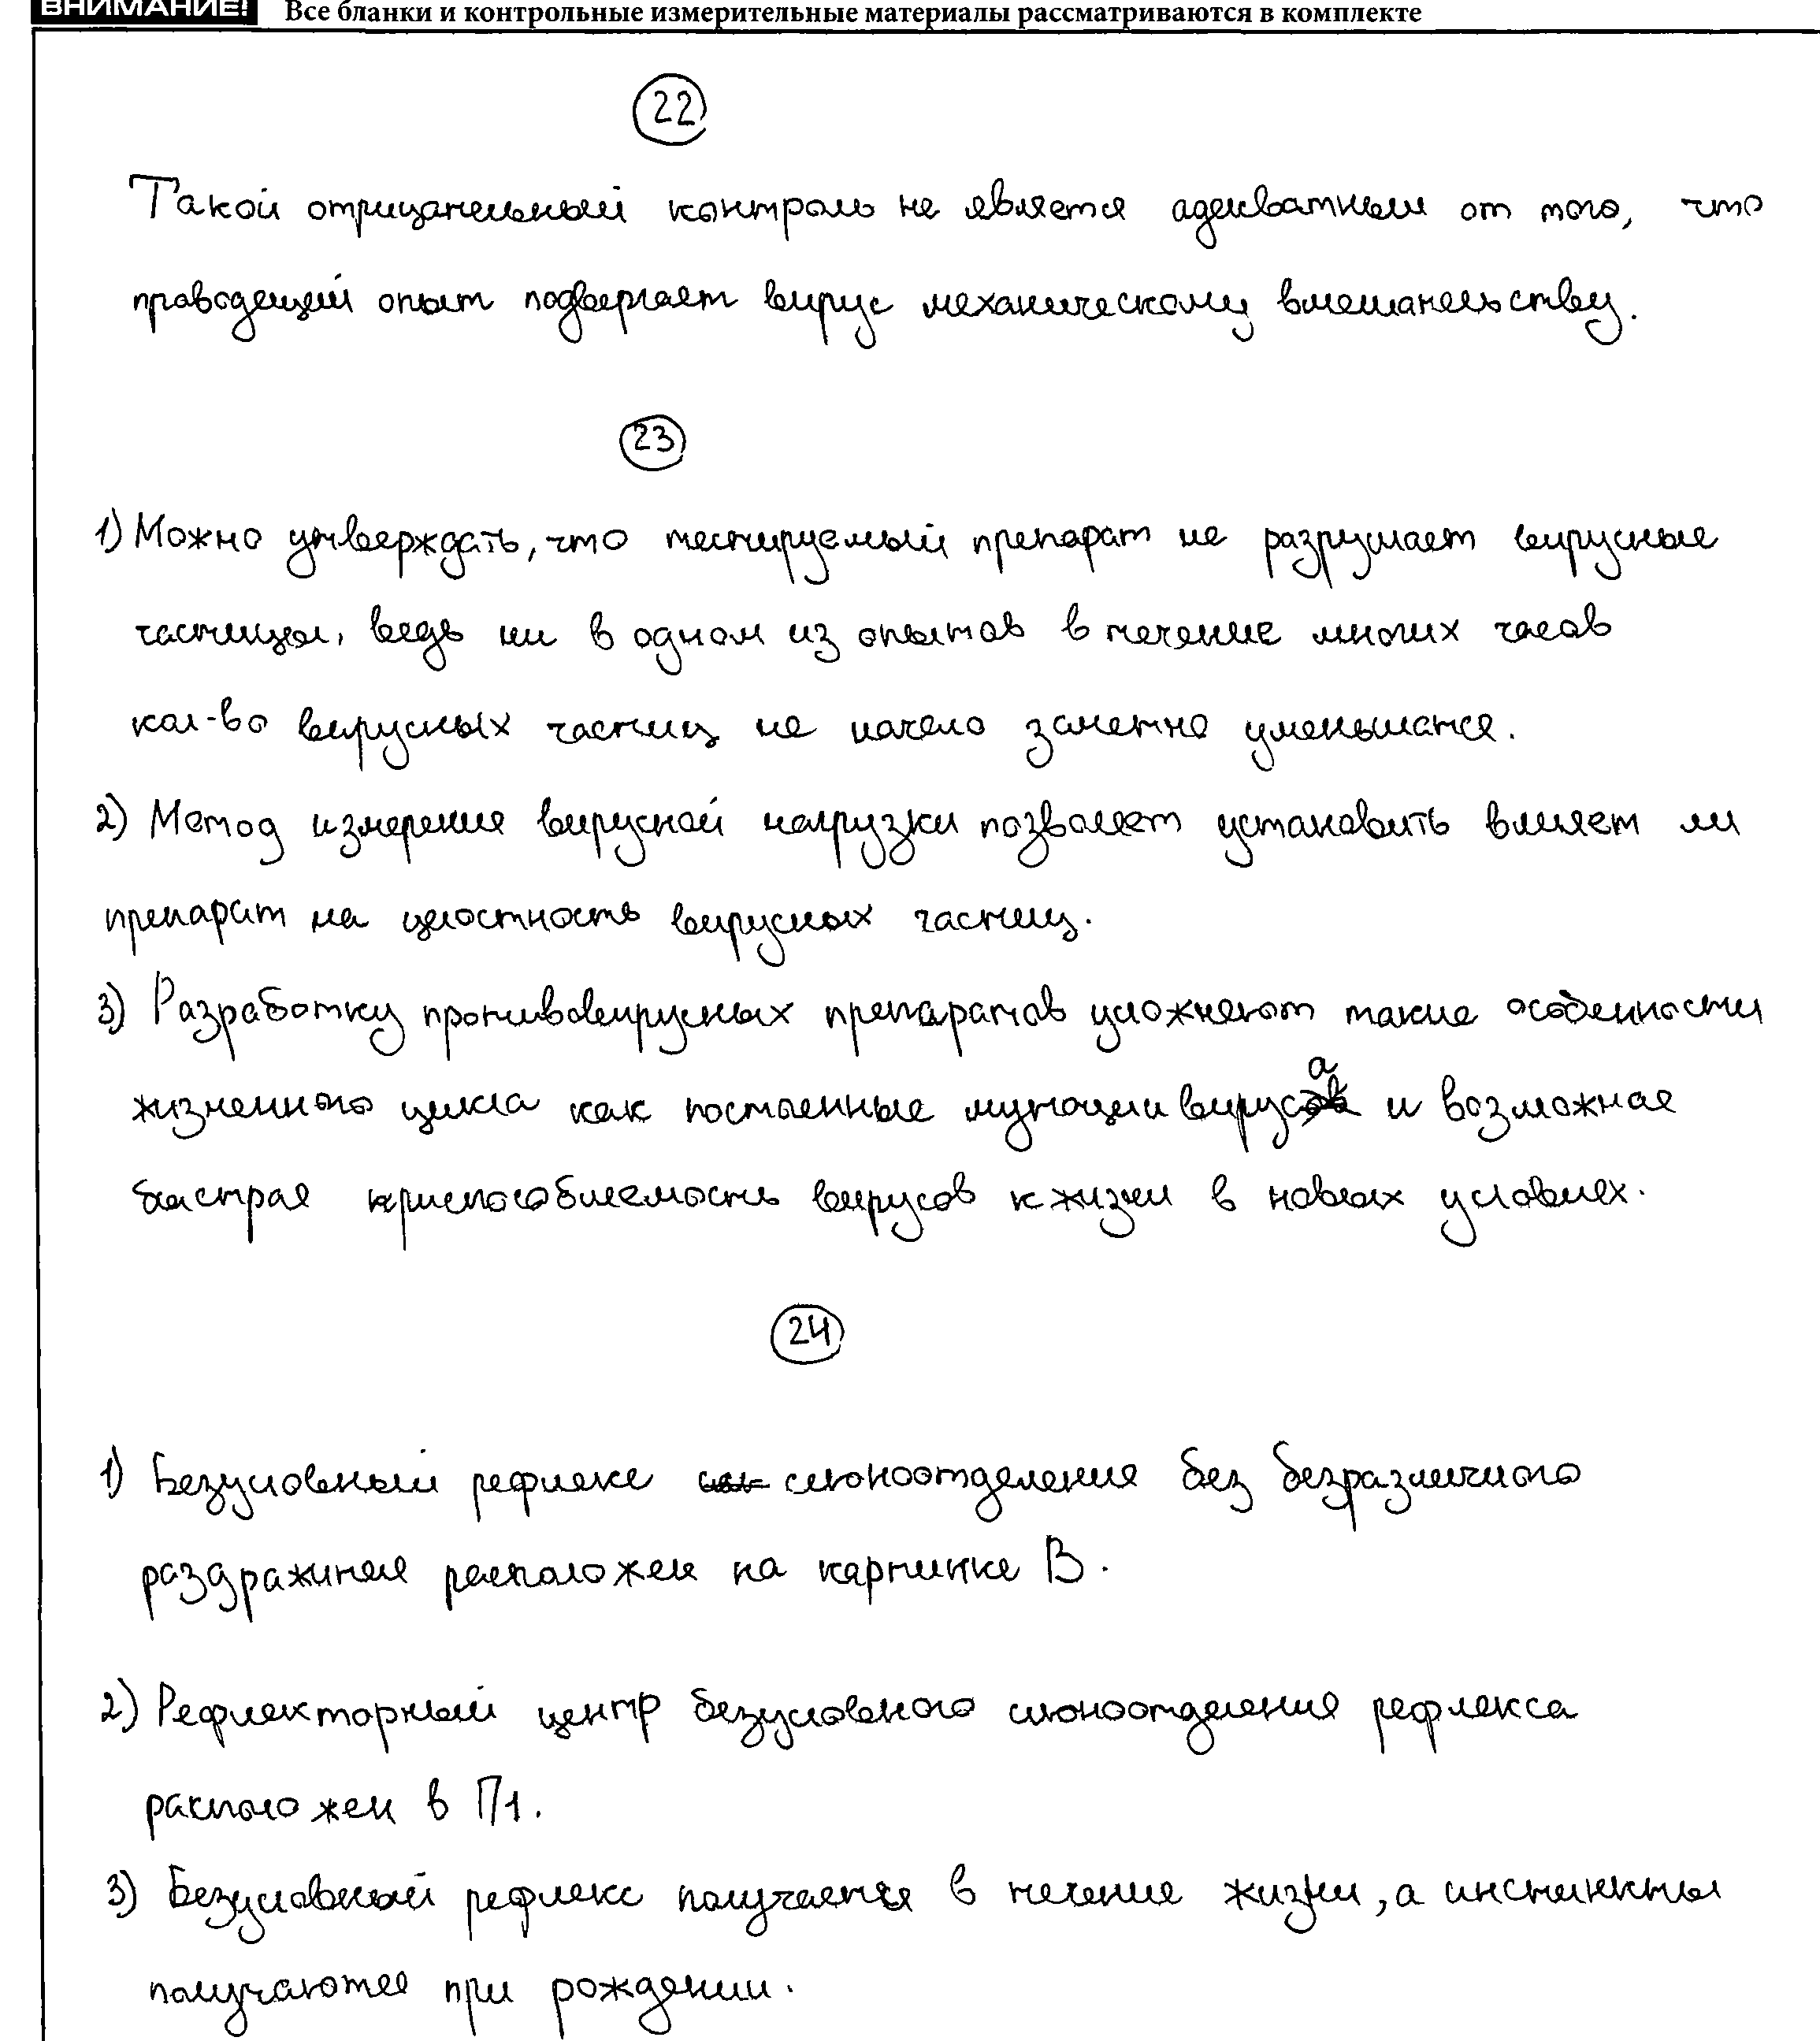 ВНИМАНИЕ! Все бланки и контрольные измерительные материалы рассматриваются в комплекте
22
Такой отрицательный контроль не является адекватным от того, что
проводящий опыт подвергает вирус механическому вмешательству.
23
1) Можно утверждать, что тестируемый препарат не разрушает вирусные
частицы, ведь ни в одном из опытов в течение многих часов
кол-во вирусных частиц не начало заметно уменьшатся.
2) Метод измерения вирусной нагрузки позволяет установить влияет ли
препарат на целостность вирусных частиц.
3) Разработку противовирусных препаратов усложняют такие особенности
жизненного цикла как постоянные мутации вируса и возможная
быстрая приспособляемость вирусов к жизни в новых условиях.
24
1) Безусловный рефлекс слюноотделения без безразличного
раздражителя расположен на картинке В.
2) Рефлекторный центр безусловного слюноотделения рефлекса
расположен в П1.
3) Безусловный рефлекс получается в течение жизни, а инстинкты
получаются при рождении.